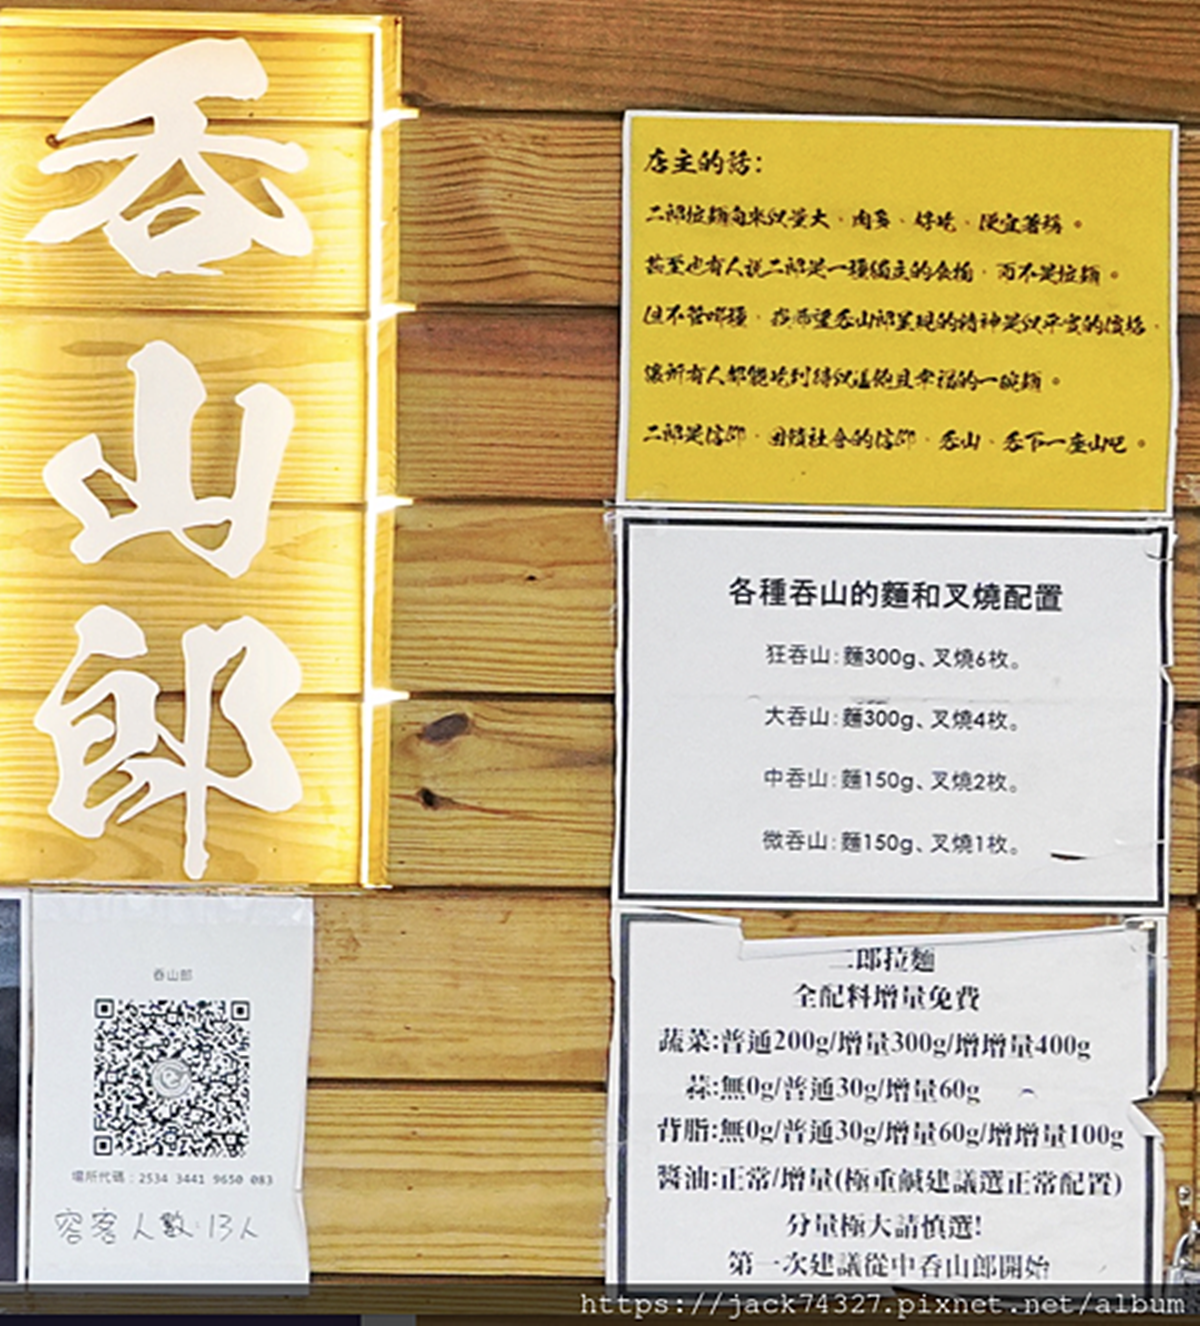 吞山郎
店主的話：
二郎拉麵向來以量大、肉多、好吃、便宜著稱。
甚至也有人說二郎是一種獨立的食物，而不是拉麵。
但不管哪種，我希望吞山郎呈現的精神是以平實的價格，
讓所有人都能吃到得以溫飽且幸福的一碗麵。
二郎是信仰，回饋社會的信仰，吞山、吞下一座山吧。
各種吞山的麵和叉燒配置
狂吞山：麵300g、叉燒6枚。
大吞山：麵300g、叉燒4枚。
中吞山：麵150g、叉燒2枚。
微吞山：麵150g、叉燒1枚。
二郎拉麵
全配料增量免費
蔬菜:普通200g/增量300g/增增量400g
蒜:無0g/普通30g/增量60g
背脂:無0g/普通30g/增量60g/增增量100g
醬油:正常/增量(極重鹹建議選正常配置)
分量極大請慎選!
第一次建議從中吞山郎開始
吞山郎
場所代碼：2534 3441 9650 083
容客人數：13人
https://jack74327.pixnet.net/album